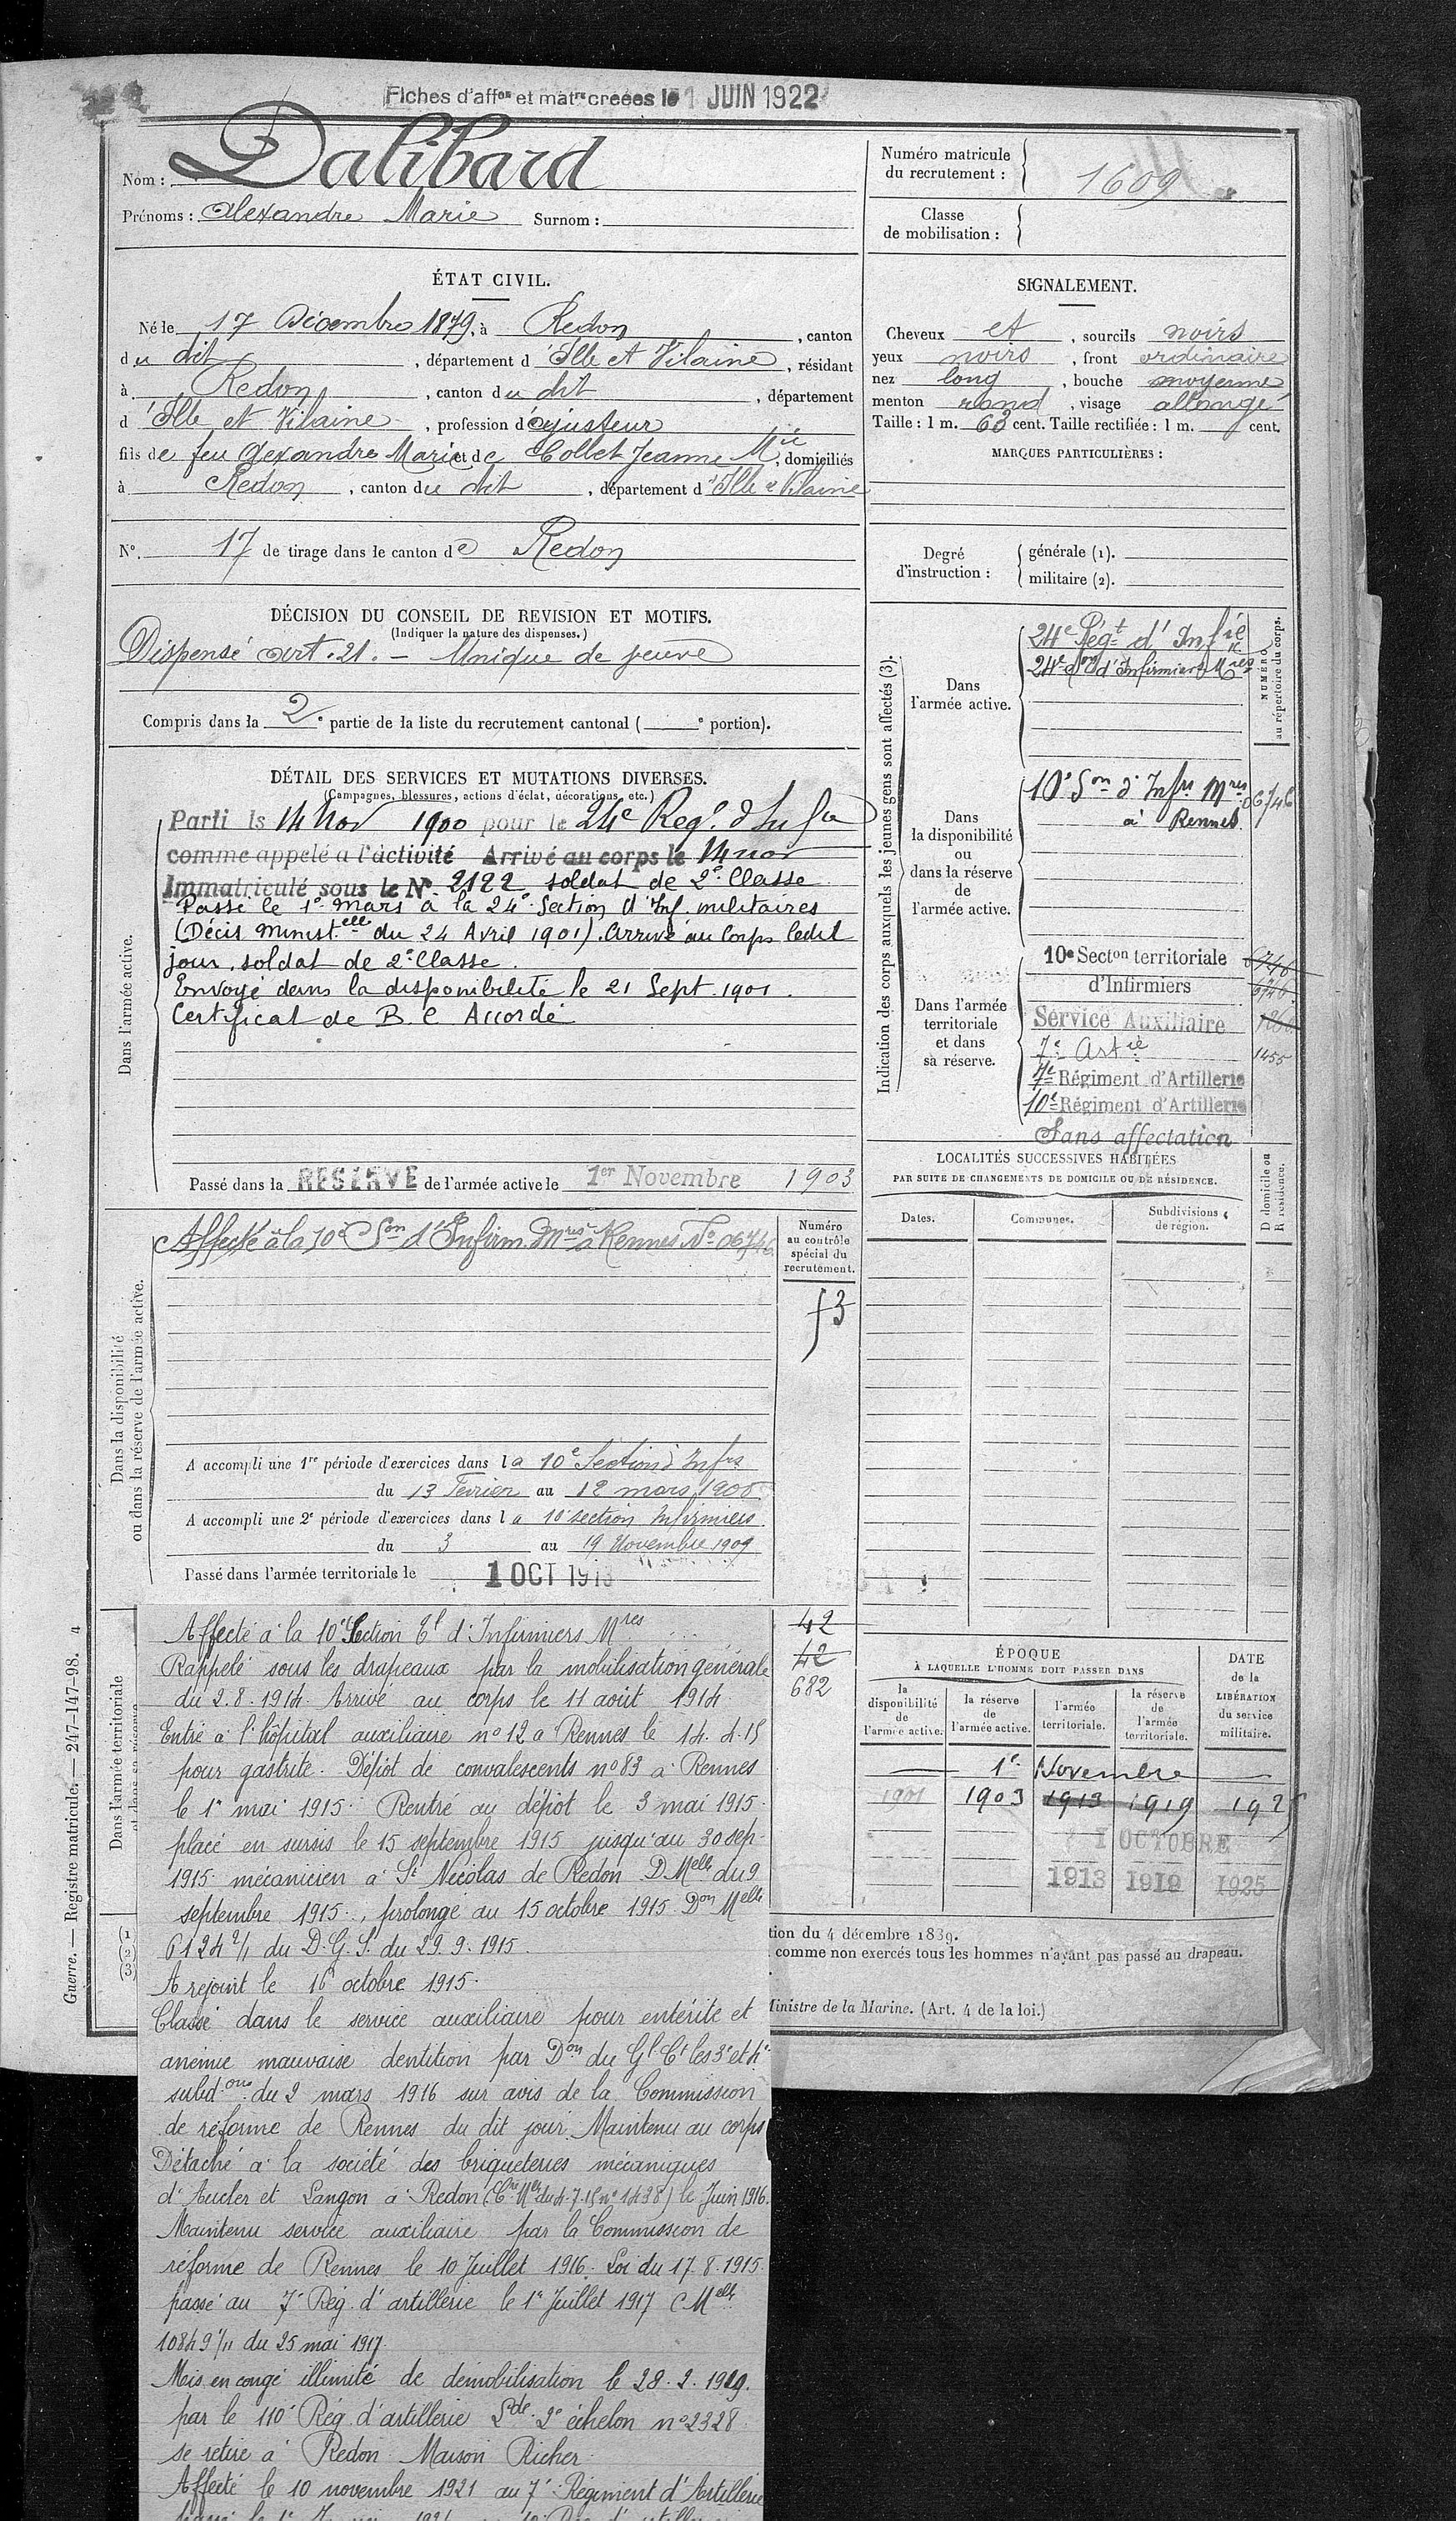 Fiches d'affon et matre creées le 1 JUIN 1922
Nom : Dalibard
Prénoms : Alexandre Marie Surnom :
Numéro matricule du recrutement : 1609
Classe de mobilisation :
ÉTAT CIVIL.
Né le 17 Décembre 1879, à Redon, canton
du dit, département d'Ille et Vilaine, résidant
à Redon, canton du dit, département
d'Ille et Vilaine, profession d'ajusteur
fils de feu Alexandre Marie et de Collet Jeanne Mie, domiciliés
à Redon, canton du dit, département d'Ille & Vilaine
N° 17 de tirage dans le canton de Redon
SIGNALEMENT.
Cheveux et, sourcils noirs
yeux noirs, front ordinaire
nez long, bouche moyenne
menton rond, visage allongé
Taille : 1 m. 63 cent. Taille rectifiée : 1 m. cent.
MARQUES PARTICULIÈRES :
Degré d'instruction : générale (1).
militaire (2).
DÉCISION DU CONSEIL DE REVISION ET MOTIFS.
(Indiquer la nature des dispenses.)
Dispensé art. 21. – Unique de veuve
Compris dans la 2e partie de la liste du recrutement cantonal ( e portion).
DÉTAIL DES SERVICES ET MUTATIONS DIVERSES.
(Campagnes, blessures, actions d'éclat, décorations, etc.)
Dans l'armée active.
Parti le 14 Nov 1900 pour le 24e Regt d'Infie
comme appelé a l'activité Arrivé au corps le 14 nov
Immatriculé sous le N° 2122 soldat de 2e Classe
Passé le 1er Mars à la 24e Section d'Inf. militaires
(Décis Ministelle du 24 Avril 1901). Arrivé au Corps ledit
jour, soldat de 2e Classe.
Envoyé dans la disponibilité le 21 Sept. 1901.
Certificat de B. C Accordé
Passé dans la RESERVE de l'armée active le 1er Novembre 1903
Indication des corps auxquels les jeunes gens sont affectés (3).
NUMÉRO au répertoire du corps.
Dans l'armée active.
24e Régt d'Infie
24e Son d'Infirmiers Mres
Dans la disponibilité ou dans la réserve de l'armée active.
10e Son d'Infrs Mres 06746
à Rennes
Dans l'armée territoriale et dans sa réserve.
10e Secton territoriale
d'Infirmiers
Service Auxiliaire
7e Artie 1455
7e Régiment d'Artillerie
10e Régiment d'Artillerie
Sans affectation
LOCALITÉS SUCCESSIVES HABITÉES
PAR SUITE DE CHANGEMENTS DE DOMICILE OU DE RÉSIDENCE.
Dates. Communes. Subdivisions de région. D domicile ou R résidence.
Dans la disponibilité ou dans la réserve de l'armée active.
Affecté à la 10e Son d'Infirm. Mres à Rennes No 06746
Numéro au contrôle spécial du recrutement.
53
A accompli une 1re période d'exercices dans la 10e Section d'Infrs
du 13 Février au 12 mars 1905
A accompli une 2e période d'exercices dans la 10e section Infirmiers
du 3 au 19 Novembre 1909
Passé dans l'armée territoriale le 1 OCT 1913
Dans l'armée territoriale
Affecté à la 10e Section Tl d'Infirmiers Mres
Rappelé sous les drapeaux par la mobilisation générale
du 2.8.1914. Arrivé au corps le 11 août 1914
Entré à l'hôpital auxiliaire n° 12 à Rennes le 14.4.15
pour gastrite. Dépôt de convalescents n° 83 à Rennes
le 1er mai 1915. Rentré au dépôt le 3 mai 1915.
placé en sursis le 15 septembre 1915 jusqu'au 30 sep-
1915 mécanicien à St Nicolas de Redon D. Melle du 9
septembre 1915., prolongé au 15 octobre 1915 Don Melle
6124 2/1 du D.G.S. du 29.9.1915.
A rejoint le 16 octobre 1915.
Classé dans le service auxiliaire pour entérite et
anémie mauvaise dentition par Don du Gl Ct les 3e et 4e
subdons du 2 mars 1916 sur avis de la Commission
de réforme de Rennes du dit jour. Maintenu au corps
Détaché à la société des briqueteries mécaniques
d'Aucler et Langon à Redon (Cre Mlle du 4.7.15 n° 1438) le Juin 1916.
Maintenu service auxiliaire par la Commission de
réforme de Rennes le 10 Juillet 1916. Loi du 17.8.1915.
passé au 7e Rég. d'artillerie le 1er Juillet 1917 C Melle
10849 1/11 du 25 mai 1917.
Mis en congé illimité de démobilisation le 28.2.1919.
par le 110e Rég. d'artillerie Lde. 2e échelon n° 2328.
se retire à Redon Maison Richer.
Affecté le 10 novembre 1921 au 7e Régiment d'Artillerie
42
42
682
ÉPOQUE
À LAQUELLE L'HOMME DOIT PASSER DANS
la disponibilité de l'armée active. la réserve de l'armée active. l'armée territoriale. la réserve de l'armée territoriale.
DATE de la LIBÉRATION du service militaire.
1er Novembre
1901 1903 1913 1919 1925
1 OCTOBRE
1913 1919 1925
tion du 4 décembre 1839.
comme non exercés tous les hommes n'ayant pas passé au drapeau.
Ministre de la Marine. (Art. 4 de la loi.)
Guerre. — Registre matricule. — 247-147-98. 4